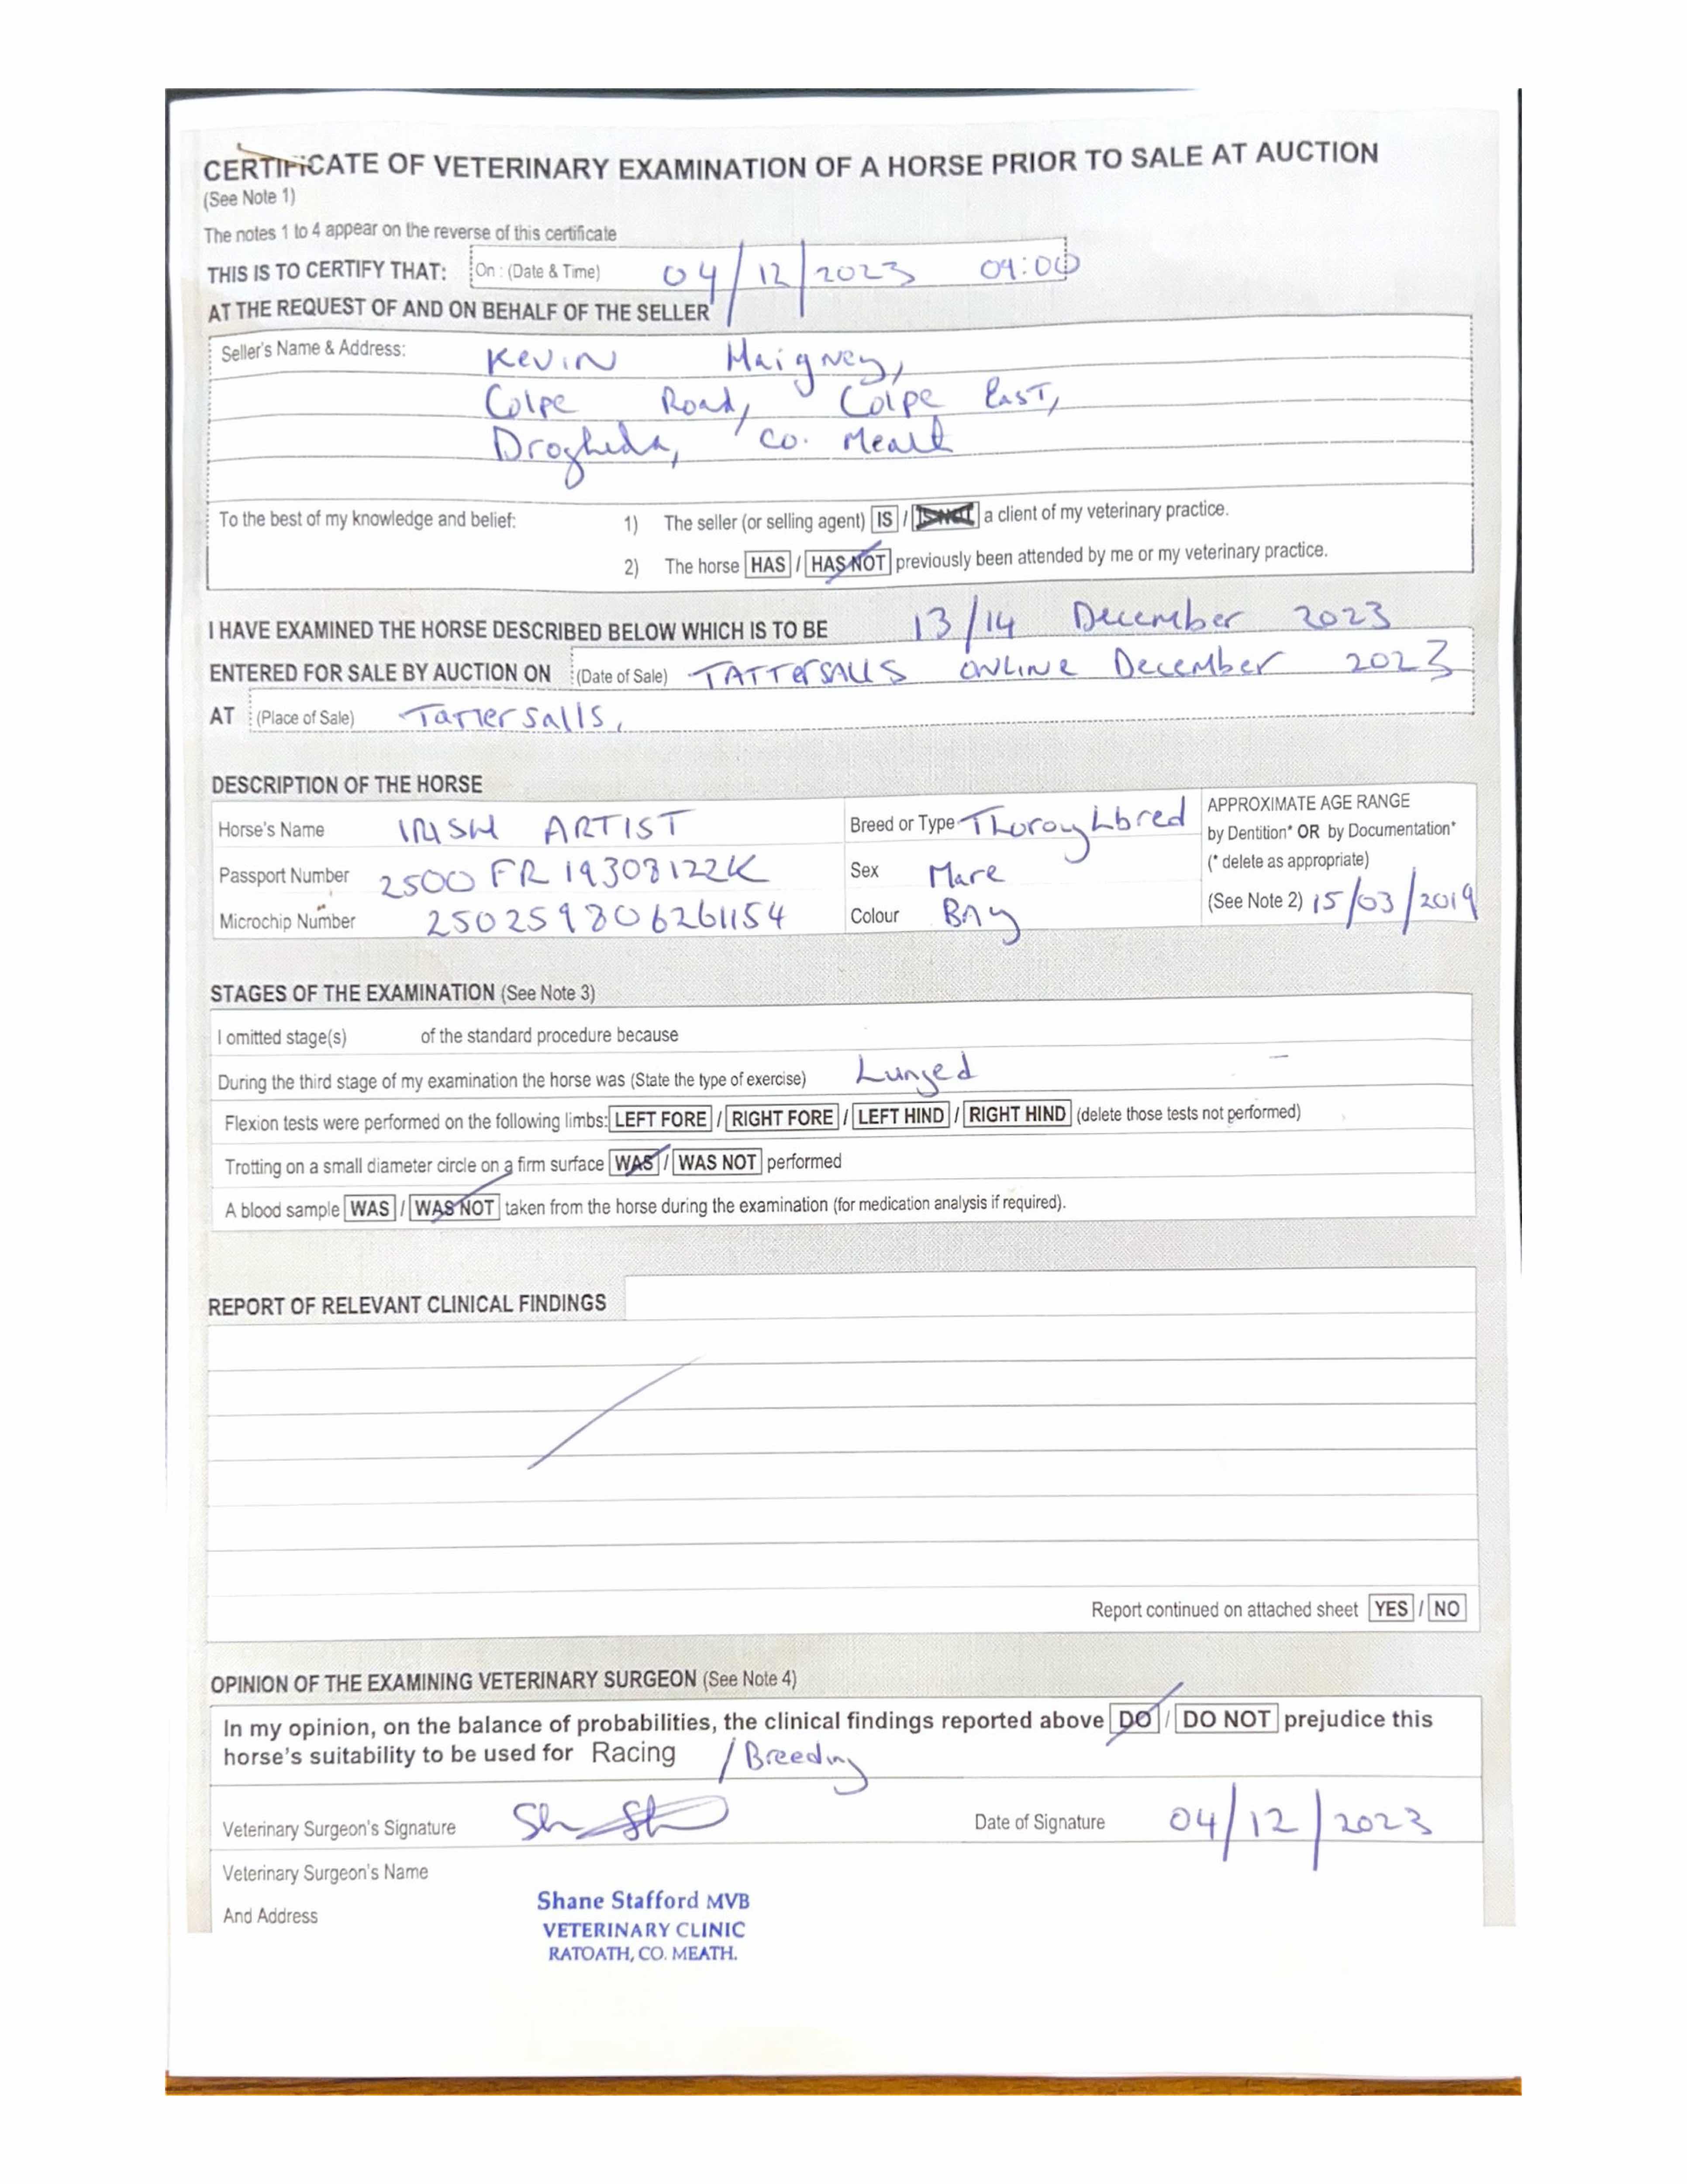 CERTIFICATE OF VETERINARY EXAMINATION OF A HORSE PRIOR TO SALE AT AUCTION
(See Note 1)
The notes 1 to 4 appear on the reverse of this certificate
THIS IS TO CERTIFY THAT: On : (Date & Time) 04/12/2023 09:00
AT THE REQUEST OF AND ON BEHALF OF THE SELLER
Seller's Name & Address: Kevin Haigney,
Colpe Road, Colpe East,
Drogheda, Co. Meath
To the best of my knowledge and belief: 1) The seller (or selling agent) IS / IS NOT a client of my veterinary practice.
2) The horse HAS / HAS NOT previously been attended by me or my veterinary practice.
I HAVE EXAMINED THE HORSE DESCRIBED BELOW WHICH IS TO BE 13/14 December 2023
ENTERED FOR SALE BY AUCTION ON (Date of Sale) TATTERSALLS ONLINE December 2023
AT (Place of Sale) Tattersalls,
DESCRIPTION OF THE HORSE
Horse's Name IRISH ARTIST Breed or Type Thoroughbred APPROXIMATE AGE RANGE
by Dentition* OR by Documentation*
Passport Number 2500 FR 19308122K Sex Mare (* delete as appropriate)
Microchip Number 250259806261154 Colour BAy (See Note 2) 15/03/2019
STAGES OF THE EXAMINATION (See Note 3)
I omitted stage(s) of the standard procedure because
During the third stage of my examination the horse was (State the type of exercise) Lunged
Flexion tests were performed on the following limbs: LEFT FORE / RIGHT FORE / LEFT HIND / RIGHT HIND (delete those tests not performed)
Trotting on a small diameter circle on a firm surface WAS / WAS NOT performed
A blood sample WAS / WAS NOT taken from the horse during the examination (for medication analysis if required).
REPORT OF RELEVANT CLINICAL FINDINGS
Report continued on attached sheet YES / NO
OPINION OF THE EXAMINING VETERINARY SURGEON (See Note 4)
In my opinion, on the balance of probabilities, the clinical findings reported above DO / DO NOT prejudice this
horse's suitability to be used for Racing / Breeding
Veterinary Surgeon's Signature Date of Signature 04/12/2023
Veterinary Surgeon's Name
And Address
Shane Stafford MVB
VETERINARY CLINIC
RATOATH, CO. MEATH.